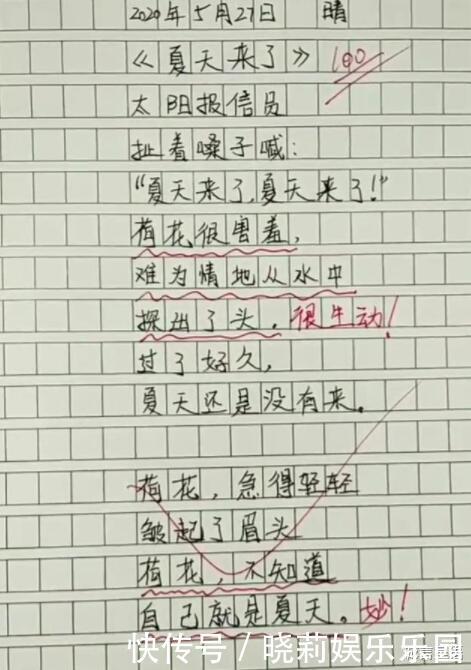 2020年5月27日 晴
《夏天来了》 100
太阳报信员
扯着嗓子喊:
“夏天来了,夏天来了!”
荷花很害羞,
难为情地从水中
探出了头。很生动!
过了好久,
夏天还是没有来。
荷花,急得轻轻
皱起了眉头
荷花,不知道
自己就是夏天。妙!
快传号/晓莉娱乐乐园